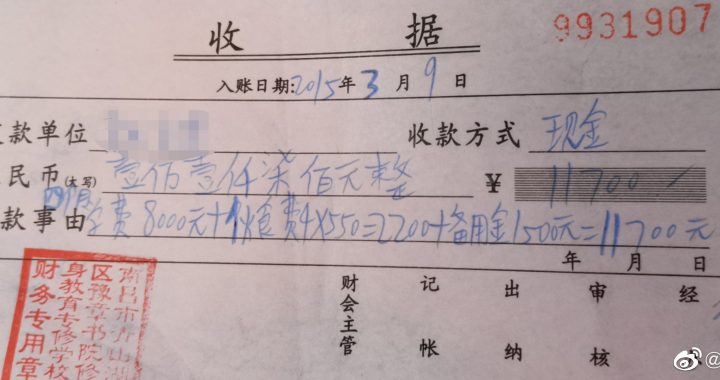 收 据 9931907
入账日期:2015年3月9日
款单位 收款方式 现金
民币(大写) 壹佰壹仟柒佰元整 ¥ 11700
款事由 四个月学费8000元+伙食费4x550=2200+备用金1500元=11700元
年 月 日
财会主管 记帐 出纳 审核 经
南昌市青山湖
区豫章书院修
身教育专修学校
财务专用章
@